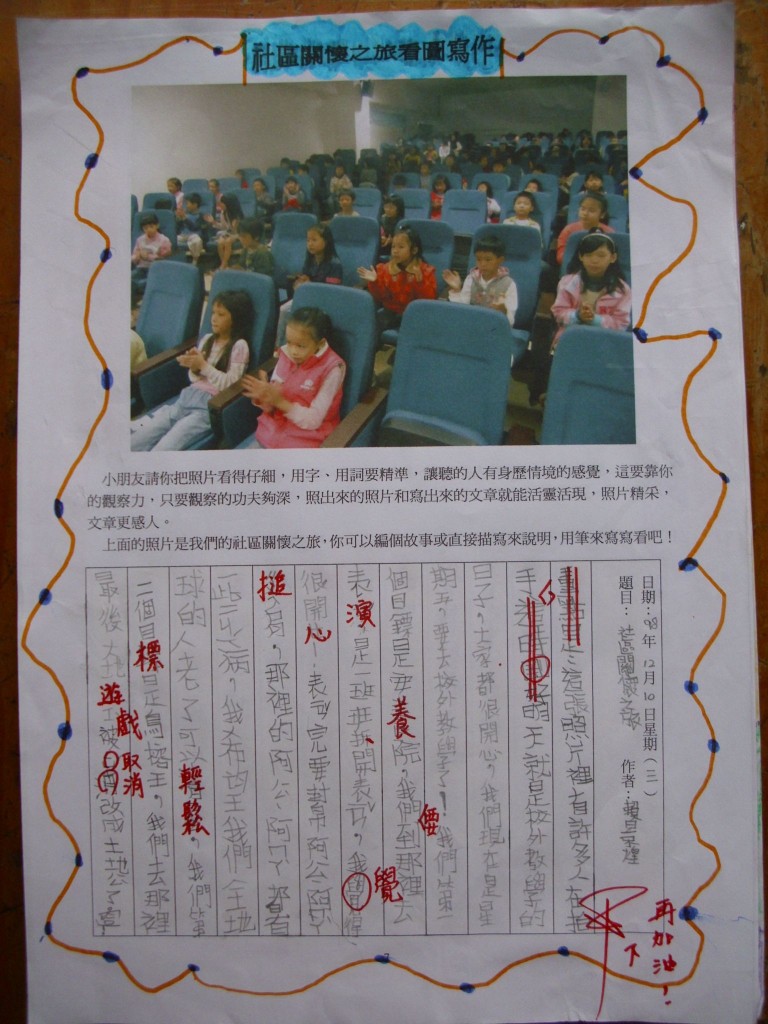 社區關懷之旅看圖寫作
小朋友請你把照片看得仔細，用字、用詞要精準，讓聽的人有身歷情境的感覺，這要靠你
的觀察力，只要觀察的功夫夠深，照出來的照片和寫出來的文章就能活靈活現，照片精采，
文章更感人。
上面的照片是我們的社區關懷之旅，你可以編個故事或直接描寫來說明，用筆來寫寫看吧！
日期：98年12月10日星期（三）
題目：社區關懷之旅 作者：賴
這張照片裡有許多人在拍
手 明天就是校外教學的
日子，大家都很開心，我們現在是星
期五，要去校外教學了，我們第一
個目標是 養院，我們到那裡去
表演，是一班班 開表演，我 覺得
很開心！表演完要幫阿公阿嬤
搥 ，那裡的阿公阿嬤都有
一些 病，我希望 我們 地
球的人老了可以 輕鬆，我們第
二個目標是鳥榕王，我們去那裡
最後大地遊戲被取消 改成土地公
再加油！
下